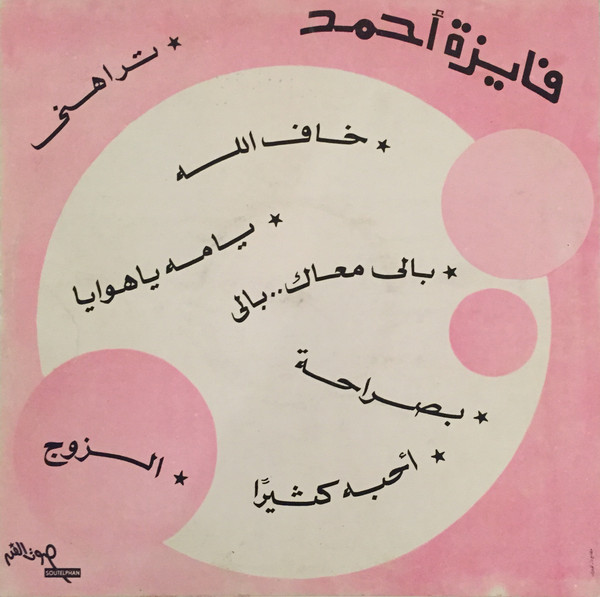 فايزة أحمد
★ تراهنى
★ خاف الله
★ يا مه يا هوايا
★ بالى معاك..بالى
★ بصراحة
★ أحبه كثيرًا
★ الزوج
صوت الفن
SOUTELPHAN